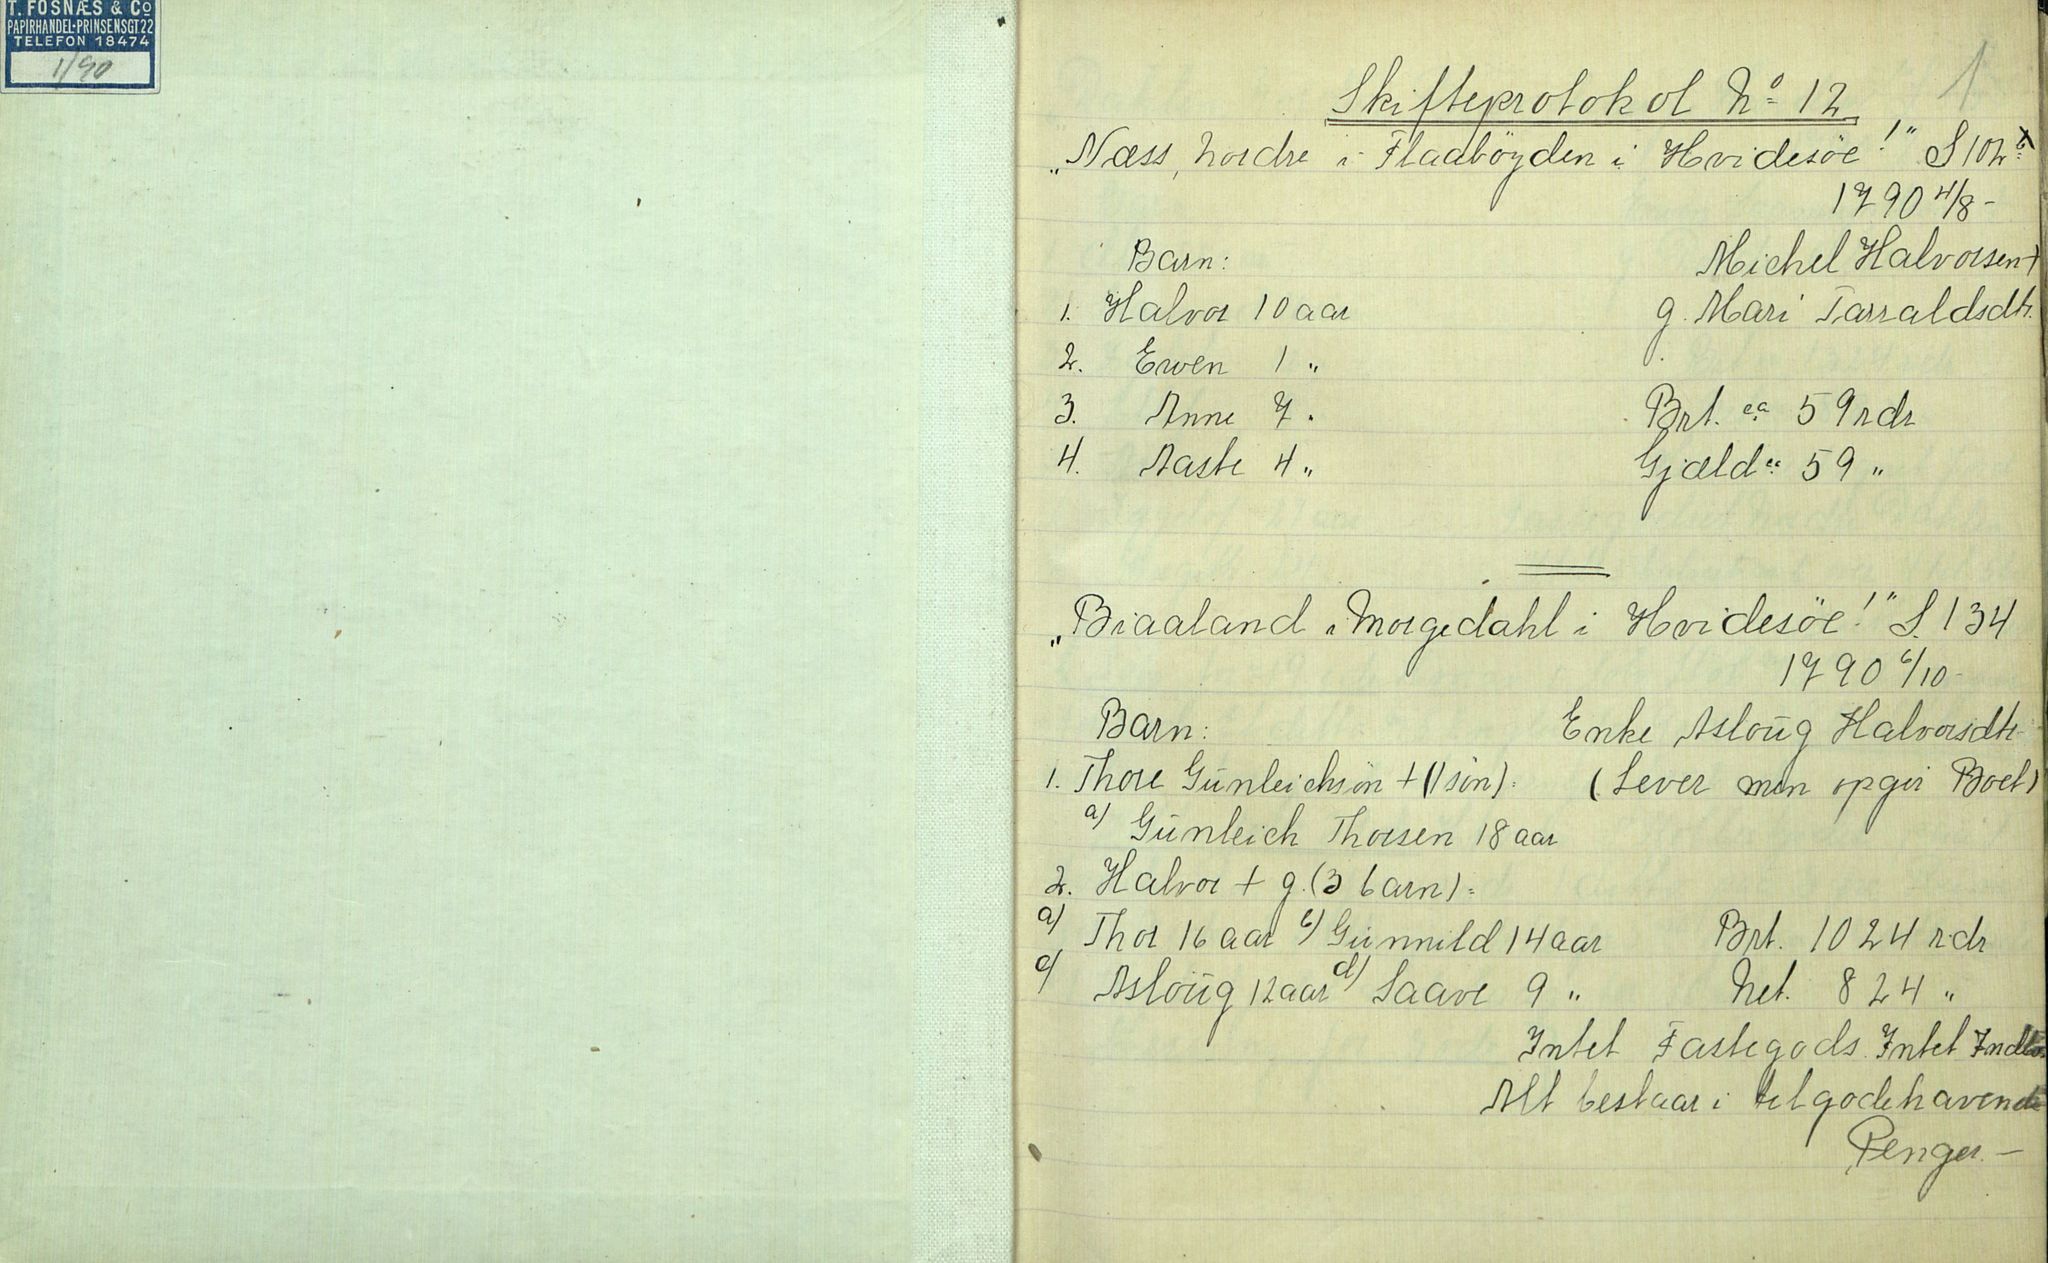 T. FOSNÆS & Co
PAPIRHANDEL-PRINSENSGT.22
TELEFON 18474
1/90
1
Skifteprotokol No 12
"Næss, nordre i Flaabøyden i Hvidesöe!" S 102 b
1790 4/8 -
Barn: Michel Halvorsen +
1. Halvor 10 aar g. Mari Tarraldsdtr.
2. Ewen 1 "
3. Anne 7 " Brt. ca 59 rdr
4. Aaste 4 " Gjæld ca 59 "
"Biaaland i Morgedahl i Hvidesöe!" S. 134
1790 6/10 -
Barn: Enke Asloug Halvorsdtr
1. Thore Gunleichsön + (1 sön): (Lever men opgir Boet)
a) Gunleich Thorsen 18 aar
2. Halvor + g. (3 barn):
a) Thor 16 aar b) Gunnild 14 aar Brt. 1024 rdr
c) Asloug 12 aar d) Saave 9 " Net. 824 "
Intet Fastegods. Intet Indbo.
Alt bestaar i tilgodehavende
Penger. -